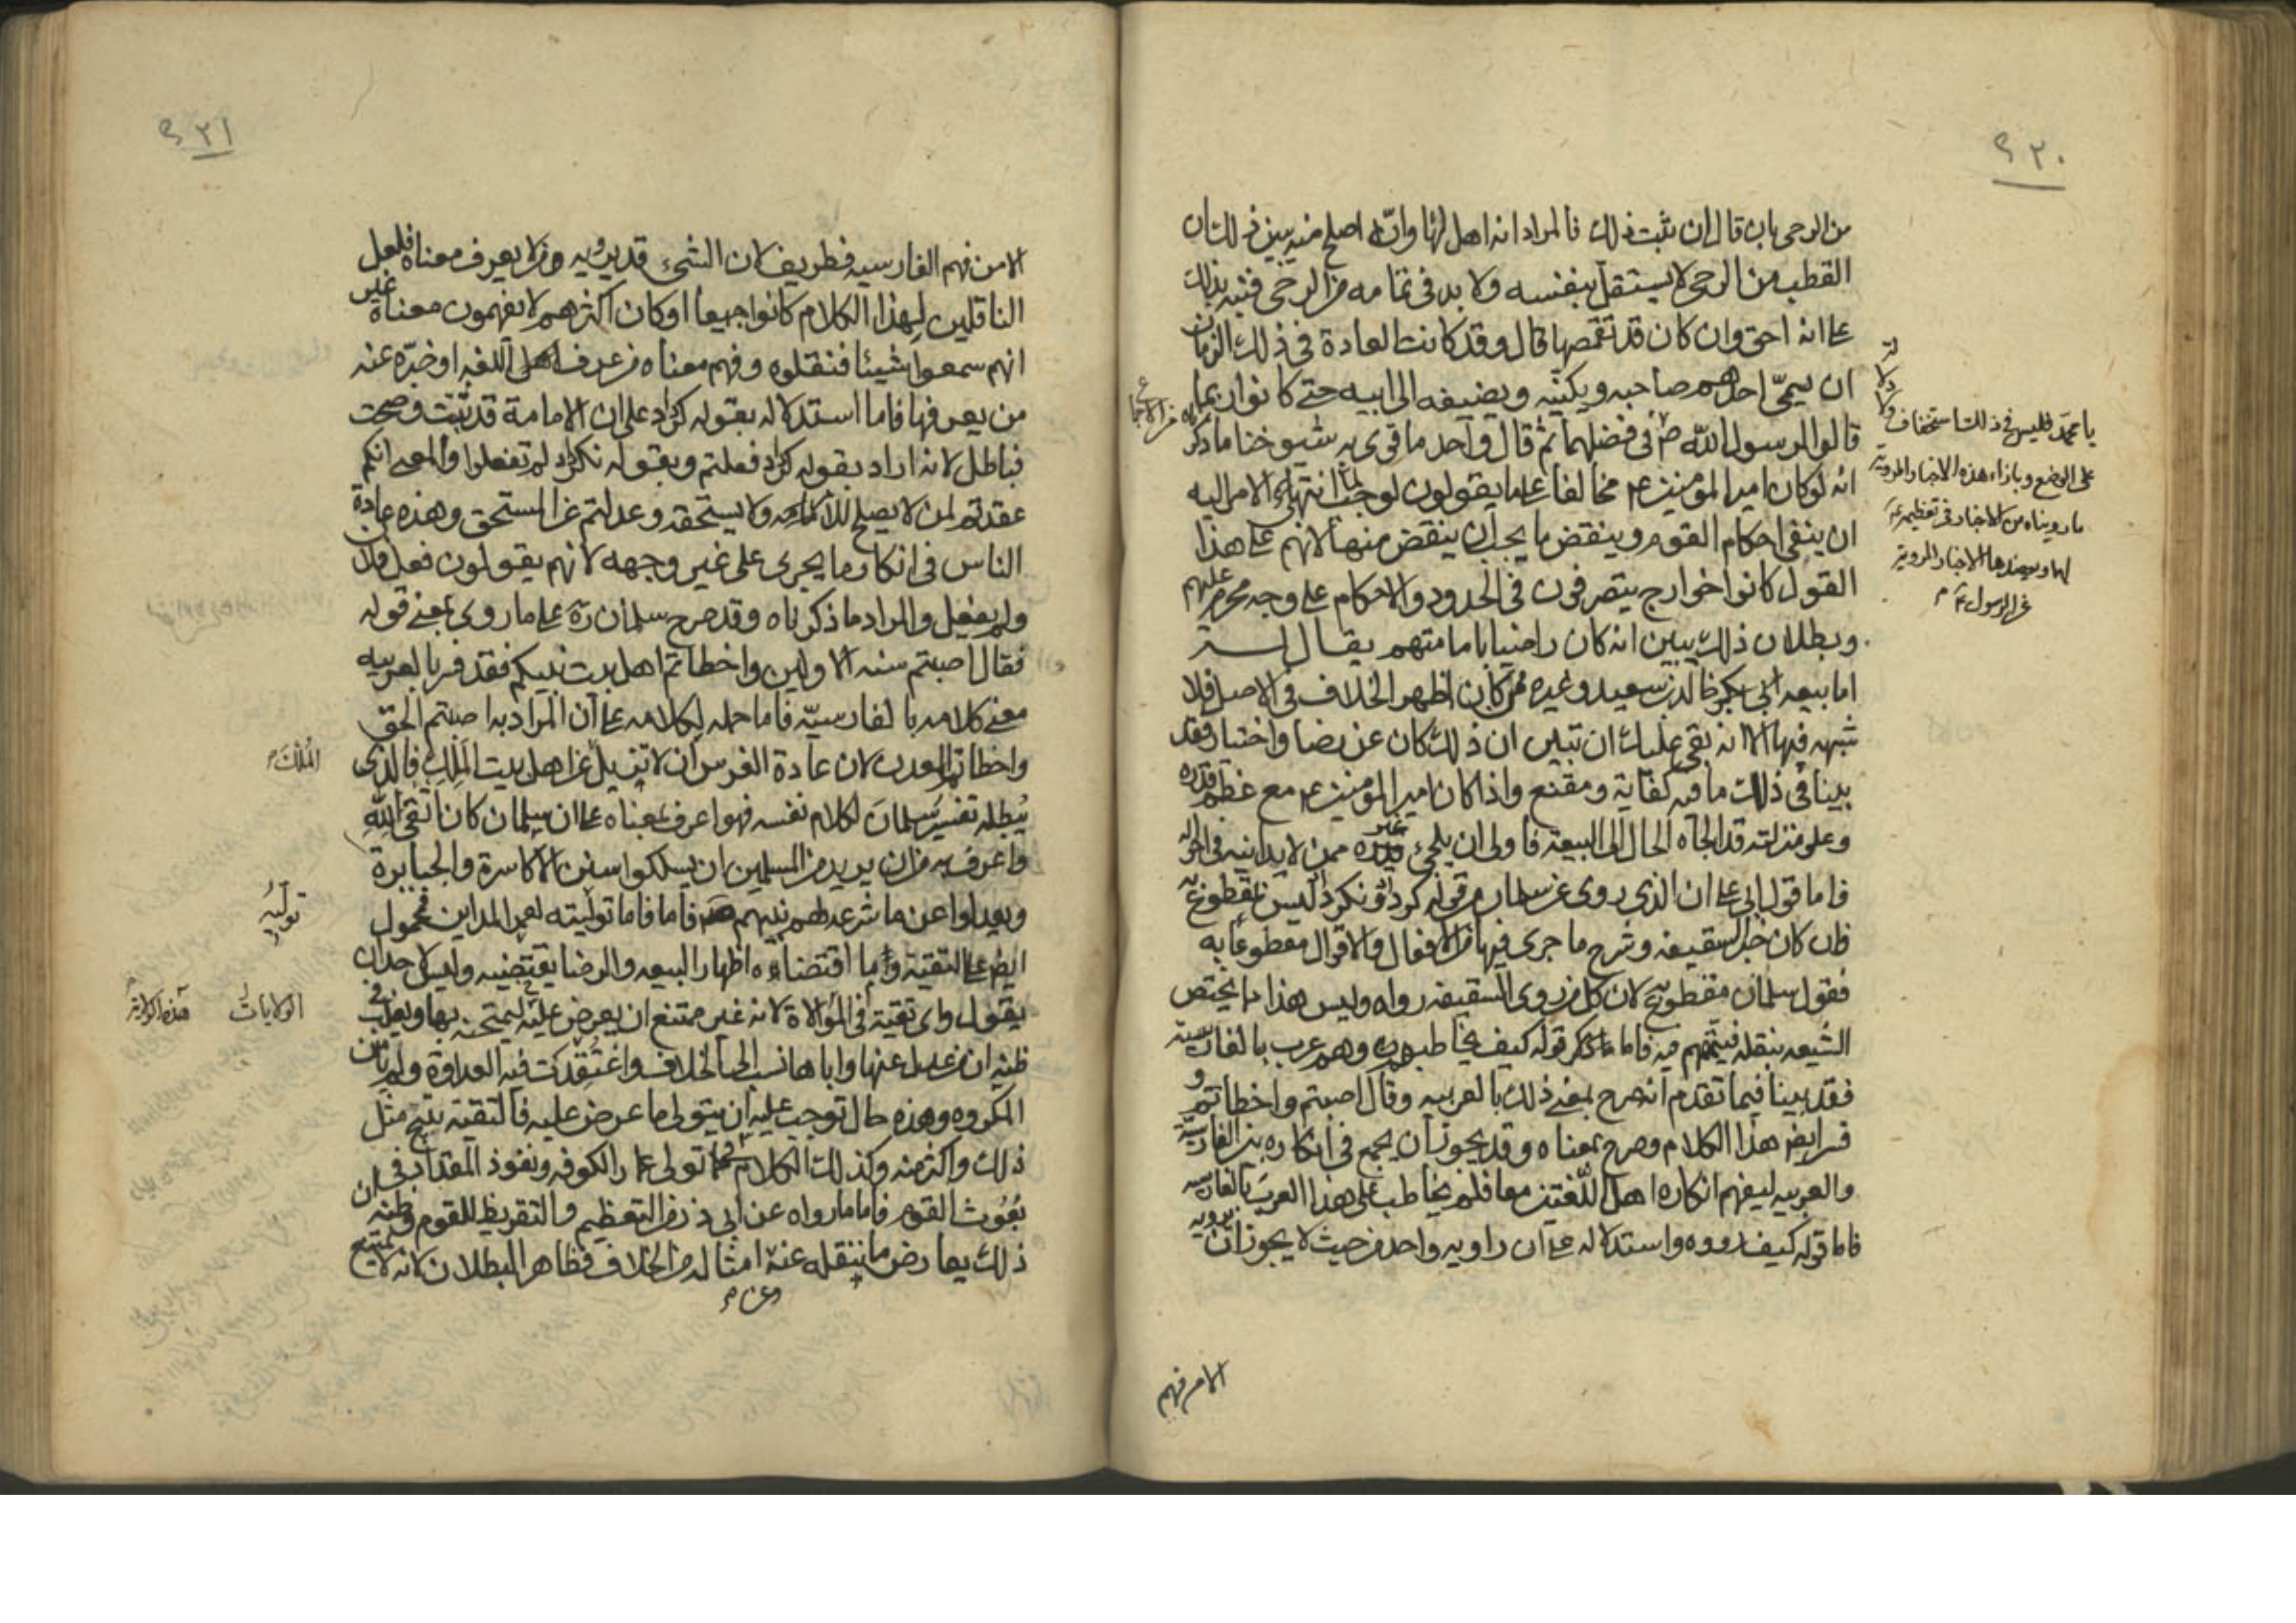 ٩٣٠
من الرحى بان قال ان ثبت ذلك فالمراد انه اهل لها وانه اصلح منه يبين ذلك ان
القطب من الرحى لا يستقل بنفسه ولا بد فى تمامه من الرحى فنبه بذلك
على انه احق وان كان قد تقمصها قال وقد كانت العادة فى ذلك الزمان
ان يسمى احدهم صاحبه ويكنيه ويضيفه الى ابيه حتى كانوا ربما
قالوا لرسول الله ص فى فضلهما ثم قال واحد ما قوى به شيوخنا ما ذكر
انه لو كان امير المؤمنين ع مخالفا على ما يقولون لوجب لما انتهى الامر اليه
ان ينقض احكام القوم وينقض ما يجب ان ينقض منها لانهم على هذا
القول كانوا خوارج يتصرفون فى الحدود والاحكام على وجه محرم عليهم
وبطلان ذلك يبين انه كان راضيا بامامتهم يقال له
اما بيعه ابى بكر خالد بن سعيد وغيره ممن كان اظهر الخلاف فى الاصل فلا
شبهه فيها الا انه بقى عليك ان تبين ان ذلك كان عن رضا واختيار وقد
بينا فى ذلك ما فيه كفاية ومقنع واذا كان امير المؤمنين ع مع عظم قدره
وعلو منزلته قد الجاه الحال الى البيعة فاولى ان يلجئ غيره ممن لا يدانيه فى احواله
فاما قول ابى على ان الذى روى عن سلمان من قوله كرديد ونكرديد ليس بمقطوع به
فان كان خبر السقيفه وشرح ما جرى فيها من الافعال والاقوال مقطوعا به
فقول سلمان مقطوع به لان كل من روى السقيفه رواه وليس هذا مما يختص
الشيعه بنقله فيتهم فيه فاما قوله كيف يخاطبهم وهم عرب بالفارسية
فقد بينا فيما تقدم انه صرح بمعنى ذلك بالعربيه وقال اصبتم واخطاتم و
فسر ايضا هذا الكلام وصرح بمعناه وقد يجوز ان يجمع فى انكاره بين الفارسية
والعربيه ليفهم انكاره اهل اللغتين معا فلم يخاطب على هذا العرب بالفارسيه
فاما قوله كيف رووه واستدلاله على ان راويه واحد من حيث لا يجوز ان يرويه
من الاتباع
يا محمد فليس فى ذلك استخفاف ولا دلالة
على الوضع وبازاء هذه الاخبار المروية
ما رويناه من الاخبار فى تعظيمه
لهما ويعضدها الاخبار المروية
عن الرسول ع م
الا من فهم
٩٣١
الا من فهم الفارسيه فطريف لان الشىء قد يرويه من لا يعرف معناه فلعل
الناقلين لهذا الكلام كانوا جميعا او كان اكثرهم لا يفهمون معناه غير
انهم سمعوا شيئا فنقلوه وفهم معناه من عرف اهل اللغه او خبره عنه
من يعرفها فاما استدلاله بقوله كرديد على ان الامامة قد ثبتت وصحت
فباطل لانه اراد بقوله كرديد فعلتم وبقوله نكرديد لم تفعلوا والمعنى انكم
عقدتم لمن لا يصلح للامر ولا يستحقه وعدلتم عن المستحق وهذه عادة
الناس فى انكار ما يجرى على غير وجهه لانهم يقولون فعل فلان
ولم يفعل والمراد ما ذكرناه وقد صرح سلمان ره على ما روى بمعنى قوله
فقال اصبتم سنه الاولين واخطاتم اهل بيت نبيكم فقد فسر بالعربيه
معنى كلامه بالفارسية فاما حمله لكلامه على ان المراد به اصبتم الحق
واخطاتم المعدن لان عادة الفرس ان لا تزيل عن اهل بيت الملك فالذى
يبطله تفسير سلمان لكلام نفسه فهو اعرف بمعناه على ان سلمان كان اتقى لله
واعرف به من ان يريد من المسلمين ان يسلكوا سنن الاكاسرة والجبابرة
ويعدلوا عن ما شرعه لهم نبيهم ص فاما توليته لعمر المداين فمحمول
ايضا على التقية وما اقتضاه اظهار البيعه والرضا يقتضيه وليس لاحد ان
يقول واى تقية فى الموالاة لانه غير ممتنع ان يعرض عليه ليمتحنه بها ويغلب فى
ظنه ان من عدل عنها واباها نسب الى الخلاف واعتقدت فيه العداوة ولم يامن
المكروه وهذه حال توجب عليه ان يتولى ما عرض عليه فالتقية تبيح مثل
ذلك واكثر منه وكذلك الكلام فى تولى عمار الكوفه ونفوذ المقداد فى
بعوث القوم فاما ما رواه عن ابى ذر من التعظيم والتقريظ للقوم وظنه ان
ذلك يعارض ما ننقله عنه امثاله من الخلاف فظاهر البطلان لانه لا يمتنع
وعن م
الملك م
توليه
الولايات
هذه الولاية